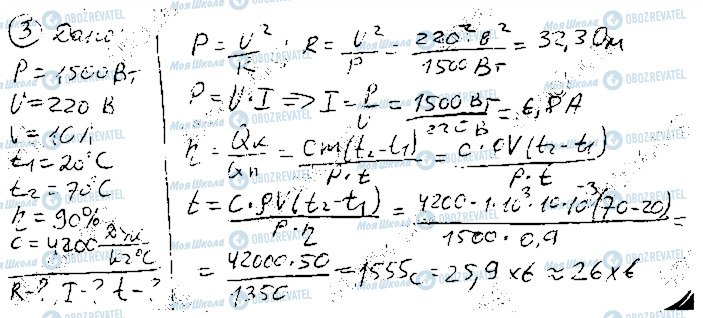 ③ Дано:
P = 1500 Вт
U = 220 В
V = 10 л
t₁ = 20°C
t₂ = 70°C
η = 90%
c = 4200 Дж/кг°C
R - ? I - ? t - ?
P = U²/R ; R = U²/P = 220² В²/1500 Вт = 32,3 Ом
P = U·I => I = P/U = 1500 Вт/220 В = 6,8 А
η = Qк/Qп = cm(t₂-t₁)/P·t = c·ρV(t₂-t₁)/P·t
t = c·ρV(t₂-t₁)/P·η = 4200·1·10³·10·10⁻³(70-20)/1500·0,9 =
= 42000·50/1350 = 1555 с = 25,9 хв ≈ 26 хв
Моя Школа
OBOZREVATEL